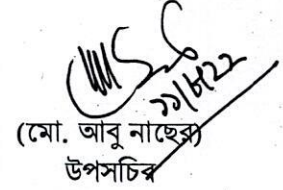 (মো. আবু নাছের)
উপসচিব